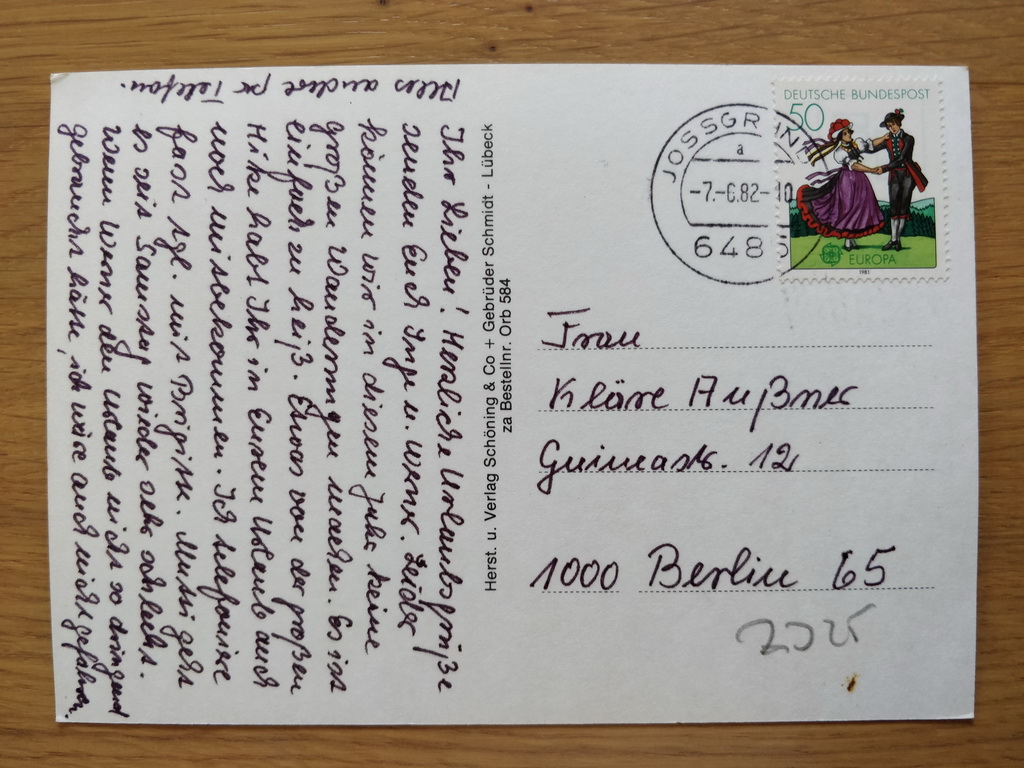 Ihr Lieben! Herzliche Urlaubsgrüße
senden Euch Inge u. Werner. Leider
können wir in diesem Jahr keine
großen Wanderungen machen. Es ist
einfach zu heiß. Etwas von der großen
Hitze habt Ihr in Eurem Urlaub auch
noch mitbekommen. Ich telefoniere
fast tgl. mit Brigitte. Mutti geht
es seit Samstag wieder sehr schlecht.
Wenn Werner den Urlaub nicht so dringend
gebraucht hätte, ich wäre auch nicht gefahren.
Alles andere per Telefon.
Herst. u. Verlag Schöning & Co + Gebrüder Schmidt - Lübeck
za Bestellnr. Orb 584
JOSSGRUND
a
-7.-6.82-10
6485
DEUTSCHE BUNDESPOST
50
EUROPA
1981
Frau
Kläre Außner
Guineastr. 12
1000 Berlin 65